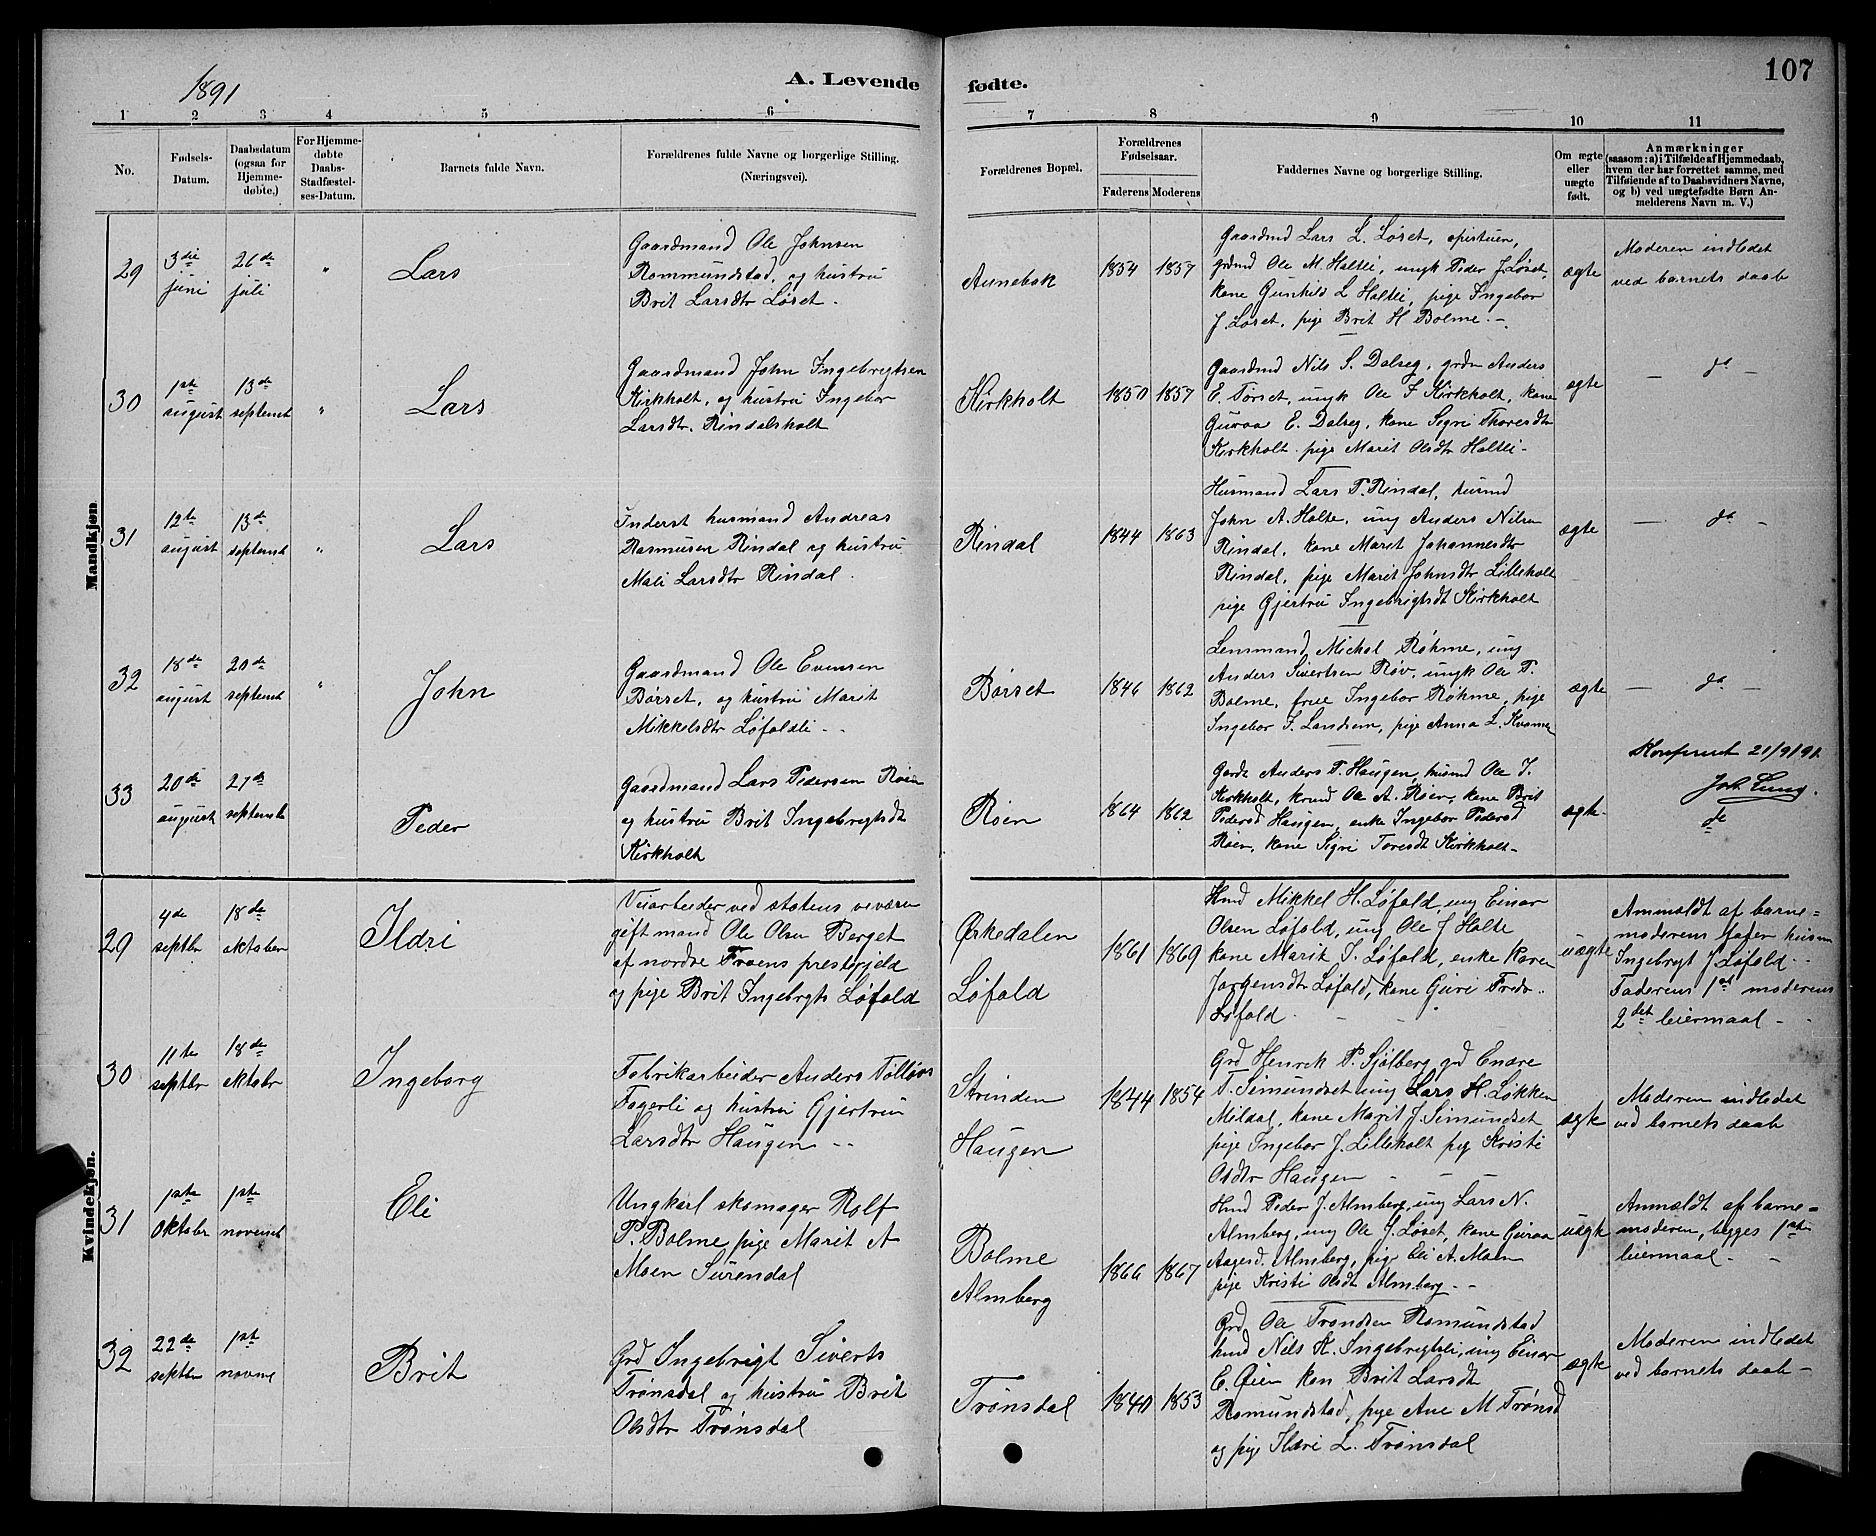 1891
A. Levende fødte.
107
1 2 3 4 5 6 7 8 9 10 11
No.
Fødsels-
Datum.
Daabsdatum
(ogsaa for
Hjemme-
døbte,)
For Hjemme-
døbte
Daabs-
Stadfæstel-
ses-Datum.
Barnets fulde Navn.
Forældrenes fulde Navne og borgerlige Stilling.
(Næringsvei).
Forældrenes Bopæl.
Forældrenes
Fødselsaar.
Faderens Moderens
Faddernes Navne og borgerlige Stilling.
Om ægte
eller
uægte
født.
Anmærkninger
(saasom: a) i Tilfælde af Hjemmedaab,
hvem der har forrettet samme, med
Tilføiende af to Daabsvidners Navne,
og b) ved uægtefødte Børn An-
melderens Navn m. V.)
Mandkjøn
29
3die
juni
26de
juli
"
Lars
Gaardmand Ole Johnsen
Rommundstad, og hustru
Brit Larsdtr Løset.
Aunebak
1854 1857
Gaardmd Lars L. Løset,
grdmd Ole M. Holtli, ungk Peder J. Løset,
kone Gunhild L Holtli, pige Ingebor
J. Løset, pige Brit H Bolme. -
ægte
Moderen indledet
ved barnets daab
30
1ste
august
13de
septembr
"
Lars
Gaardmand John Ingebrigtsen
Kirkholt, og hustru Ingebor
Larsdtr. Rindalsholt
Kirkholt
1850 1857
Gaardmd Nils S. Dalseg, grdm Anders
E. Torset, ungk Ole J Kirkholt, kone
Guroa E. Dalseg, kone Sigri Thoresdtr
Kirkholt. pige Marit Olsdtr Holtli -
ægte
- do -
31
12te
august
13de
septembr
"
Lars
Inderst husmand Andreas
Rasmusen Rindal og hustru
Mali Larsdtr Rindal.
Rindal
1844 1863
Husmand Lars P. Rindal, husmd
John A. Holte, ung Anders Nilsen
Rindal, kone Marit Johannesdtr
Rindal, pige Marit Johnsdtr Lilleholt
pige Gjertru Ingebrigtsdt Kirkholt
ægte
- do -
32
18de
august
20de
septembr
"
John
Gaardmand Ole Evensen
Børset, og hustru Marit
Mikkelsdtr Løfaldli - -
Børset
1846 1862
Lensmand Michal Røhme, ung
Anders Sivertsen Røv, ungk Ole P.
Bolme, frue Ingebor Røhme, pige
Ingebor J. Landsem, pige Anna L. Kvame
ægte
- do -
Konferert 21/9 1891.
33
20de
august
27de
septembr
Peder
Gaardmand Lars Pedersen Røen
og hustru Brit Ingebrigtsdt
Kirkholt
Røen
1864 1862
Gardr Anders P. Haugen, husmd Ole J.
Kirkholt, Ole A. Røen, kone Brit
Pedersd Haugen, enke Ingebor Pedersd
Røen, kone Sigri Toresdt Kirkholt -
ægte.
do
Kvindekjøn.
29
4de
septbr
18de
oktober
Ildri
Veiarbeider ved statens veivæsen
gift mand Ole Olsen Berget
af nordre Froens prestegjeld
og pige Brit Ingebrgts Løfald
Ørkedalen
Løfald
1861 1869
Hmd Mikkel H. Løfald, ung Einar
Olsen Løfold, ung Ole J Holte
kone Marit S. Løfald, enke Karen
Jørgensdtr Løfald, kone Guri Fredr..
Løfald.
uægte
Anmældt af barne=
moderens fader husm
Ingebrgt J Løfald -
Faderens 1st moderens
2det leiermaal -
30
11te
septbr
18de
oktobr
Ingeborg
Fabrikarbeider Anders Tølløvs
Fagerli og hustru Gjertru
Larsdtr Haugen - -
Strinden
Haugen
1844 1854
Grd Henrik P. Sjølberg grd Enare
T. Simundset ung Lars H. Løkken
Meldal, kone Marit J. Simundset
pige Ingebor J. Lilleholt pig Kristi
Olsdtr Haugen - -
ægte
Moderen indledet
ved barnets daab
31
1ste
oktober
1ste
novembr
Eli
Ungkarl skomager Rolf
P. Bolme, pige Marit A
Moen Surendal
Bolme
Almberg
1866 1867
Hmd Peder J. Almberg, ung Lars N.
Almberg, ung Ole J. Løset, kone Guroa
Aagesd. Almberg, pige Eli A. Moen
pige Kristi Olsdt Almberg - -
uægte
Anmældt af barne=
moderen, begges 1ste
leiermaal - -
32
22de
septbr
1ste
novme
Brit
Grd Ingebrigt Siverts
Trønsdal og hustru Brit
Olsdtr Trønsdal
Trønsdal
1840 1853
Grd Ole Trondsen Romundstad
hmd Nils H. Ingebrigtsli, ung Einar
E. Øien kon Brit Larsdt
Romundstad, pige Ane M Trønsd
og pige Ildri L. Trønsdal
ægte
Moderen indledet
ved barnets daab -